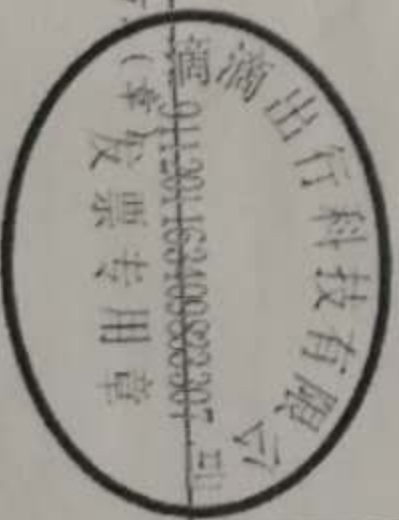 滴滴出行科技有限公司
911201163409833307
(章)
发票专用章